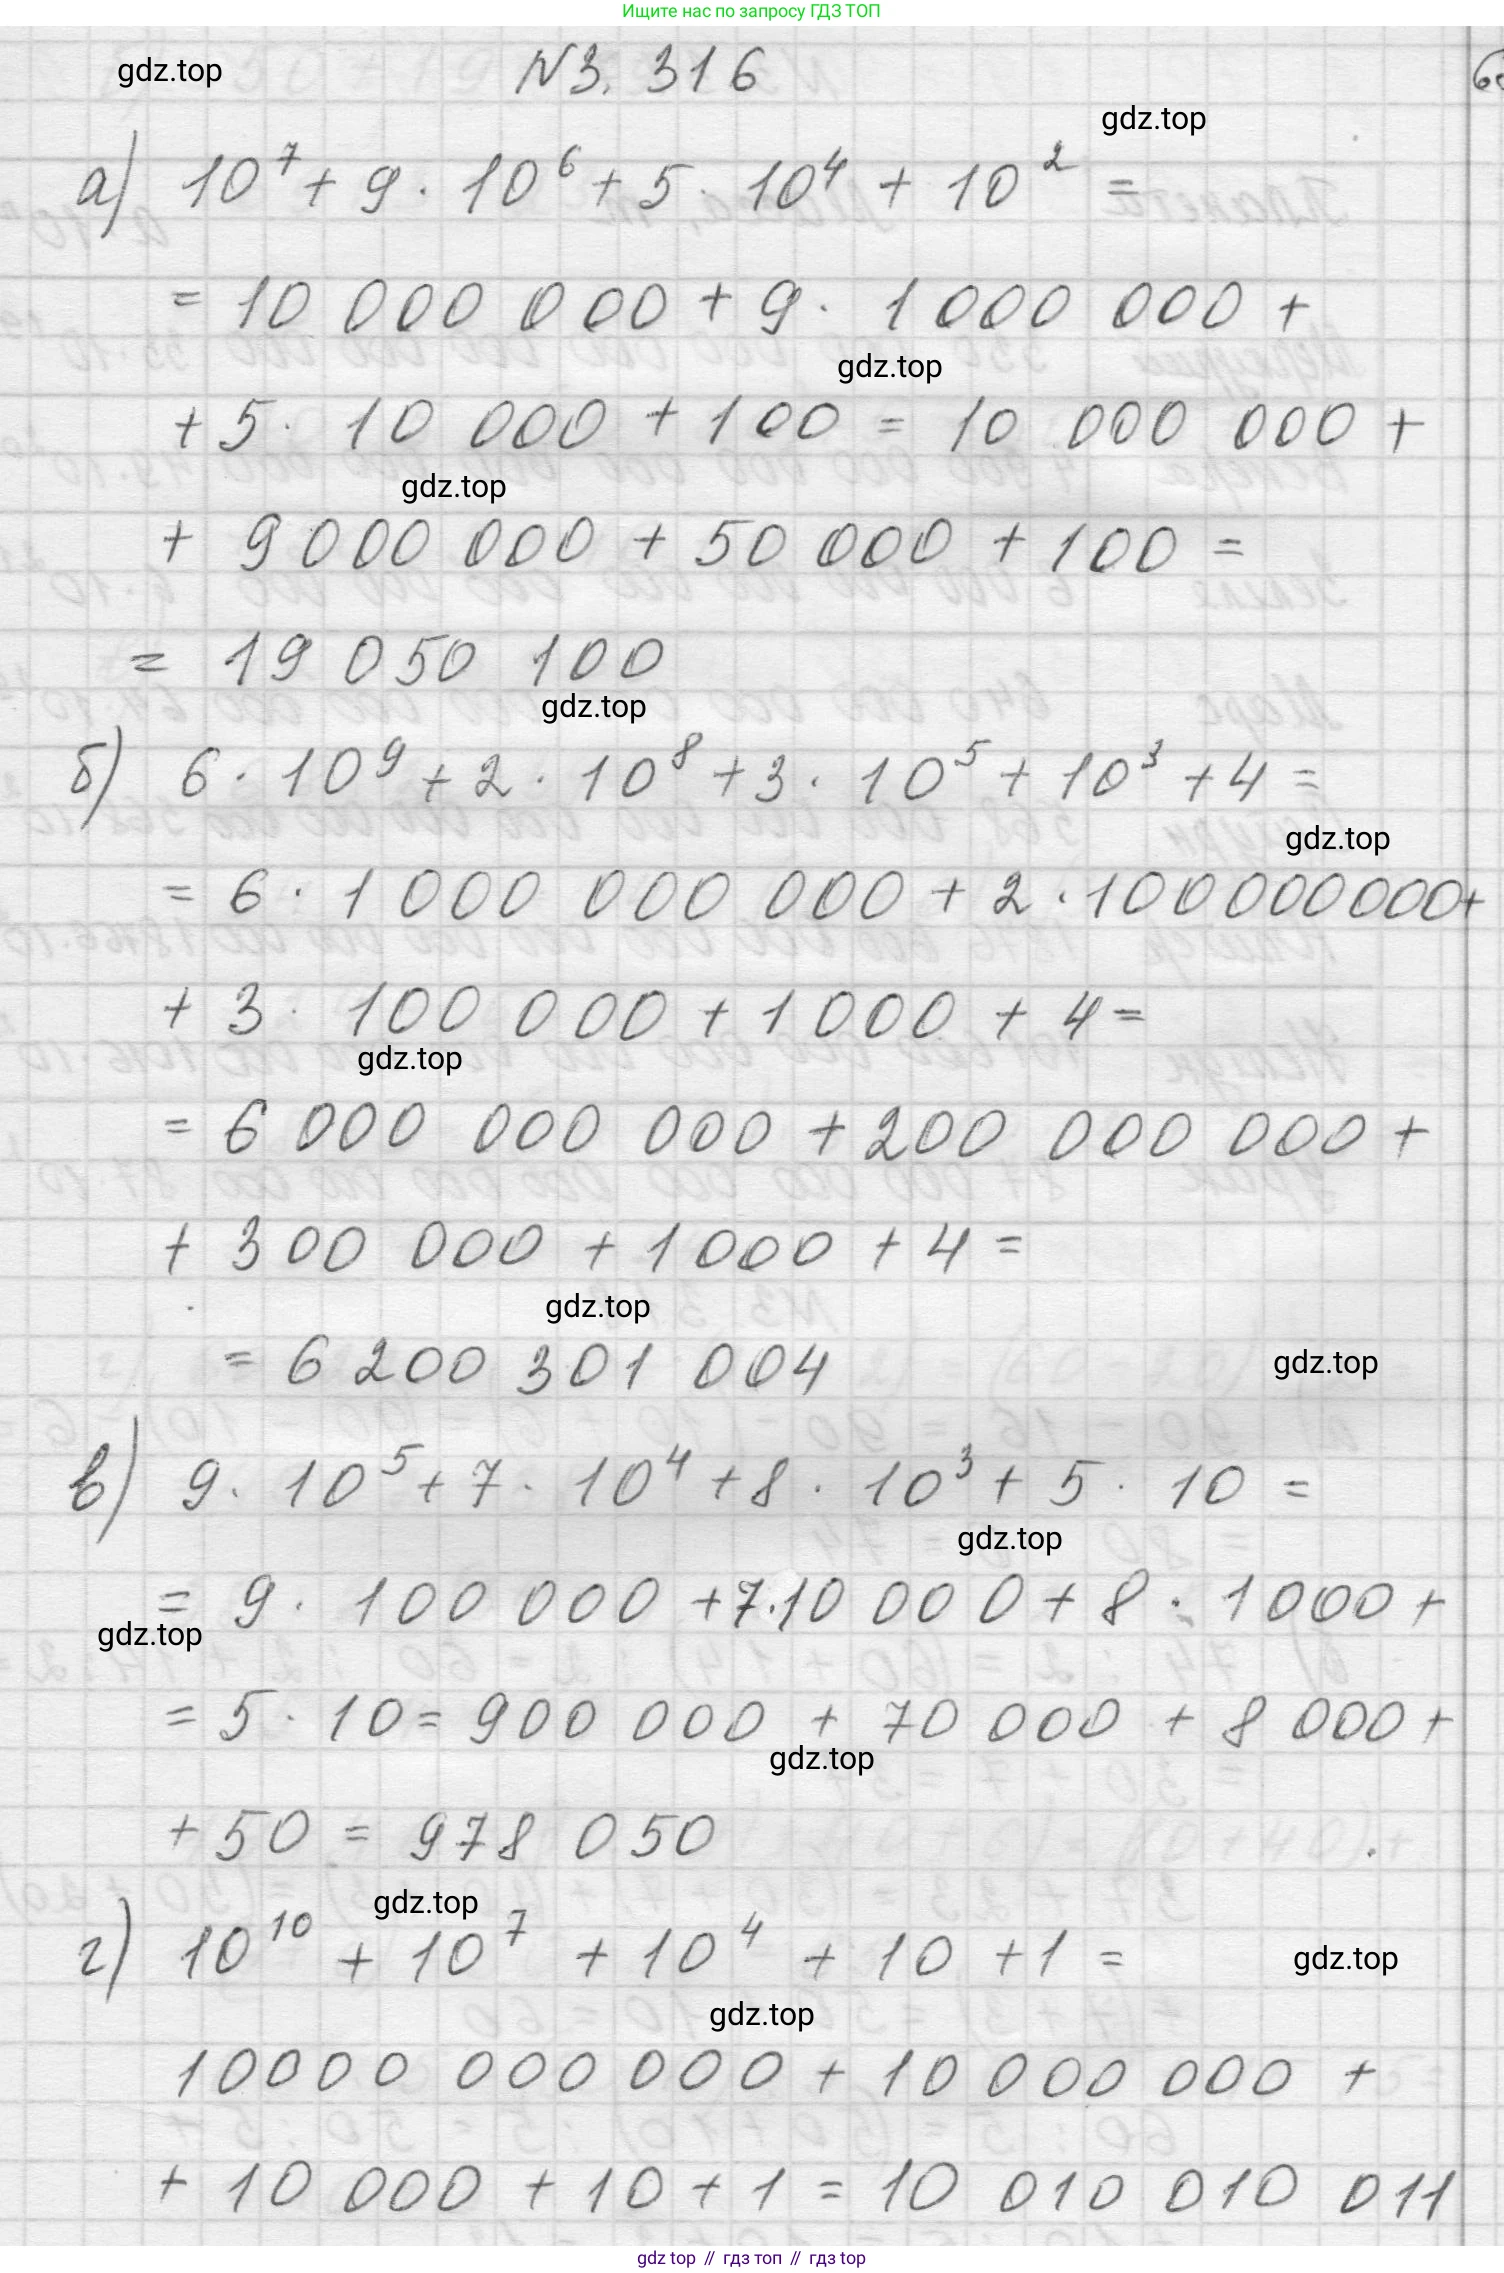 Ищите нас по запросу ГДЗ ТОП
N3. 316
gdz.top
gdz.top
а) 10⁷ + 9 · 10⁶ + 5 · 10⁴ + 10² =
= 10 000 000 + 9 · 1 000 000 +
gdz.top
+ 5 · 10 000 + 100 = 10 000 000 +
gdz.top
+ 9 000 000 + 50 000 + 100 =
= 19 050 100
gdz.top
б) 6 · 10⁹ + 2 · 10⁸ + 3 · 10⁵ + 10³ + 4 =
gdz.top
= 6 · 1 000 000 000 + 2 · 100 000 000 +
+ 3 · 100 000 + 1 000 + 4 =
gdz.top
= 6 000 000 000 + 200 000 000 +
+ 300 000 + 1 000 + 4 =
gdz.top
= 6 200 301 004
gdz.top
в) 9 · 10⁵ + 7 · 10⁴ + 8 · 10³ + 5 · 10 =
gdz.top
= 9 · 100 000 + 7 · 10 000 + 8 · 1000 +
gdz.top
= 5 · 10 = 900 000 + 70 000 + 8 000 +
gdz.top
+ 50 = 978 050
gdz.top
г) 10¹⁰ + 10⁷ + 10⁴ + 10 + 1 =
gdz.top
gdz.top
10000 000 000 + 10 000 000 +
+ 10 000 + 10 + 1 = 10 010 010 011
gdz top // гдз топ // гдз top